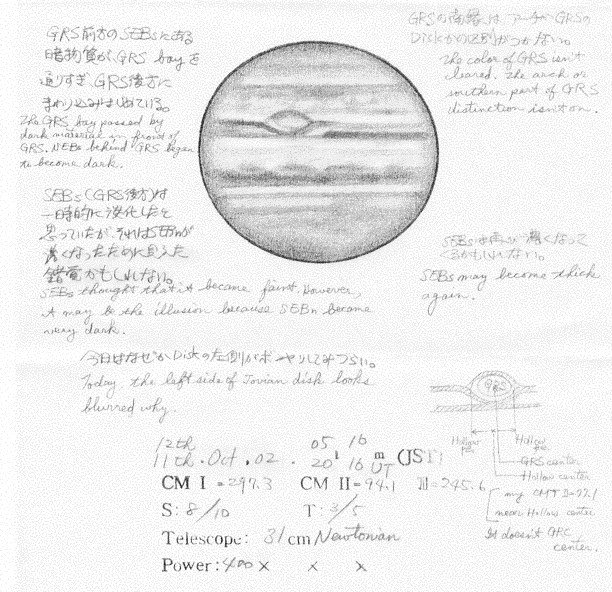 GRS前方のSEBsにある
暗物質が、GRS bayを
通りすぎ、GRS後方に
まわり込みはじめている。
The GRS bay passed by
dark material in front of
GRS. NEBs behind GRS began
to become dark.
GRSの南縁は、アーチかGRSの
Diskかの区別がつかない。
The color of GRS isn't
cleared. The arch or
southern part of GRS
distinction isn't on.
SEBs(GRS後方)は
一時的に淡化したと
思っていたが、それはSEBnが
濃くなったために見えた
錯覚かもしれない。
SEBs thought that it became faint. However,
it may be the illusion because SEBn became
very dark.
SEBsは再び濃くなって
くるかもしれない。
SEBs may become thick
again.
今日はなぜかDiskの左側がボンヤリしてみづらい。
Today, the left side of Jovian disk looks
blurred why.
GRS
Hollow
Hollow
GRS center
Hollow center
my CMT II=
near Hollow center
It doesn't GRC
center.
12th 05 16
11th. Oct. 02. 20h 16m UT (JST)
CM I = 297.3 CM II = 94.1 III = 245.6
S: 8/10 T: 3/5
Telescope: 31cm Newtonian
Power: 400× × ×